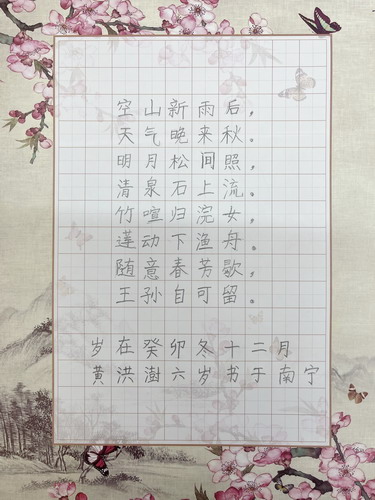 空山新雨后，
天气晚来秋。
明月松间照，
清泉石上流。
竹喧归浣女，
莲动下渔舟。
随意春芳歇，
王孙自可留。
岁在癸卯冬十二月
黄洪澍六岁书于南宁